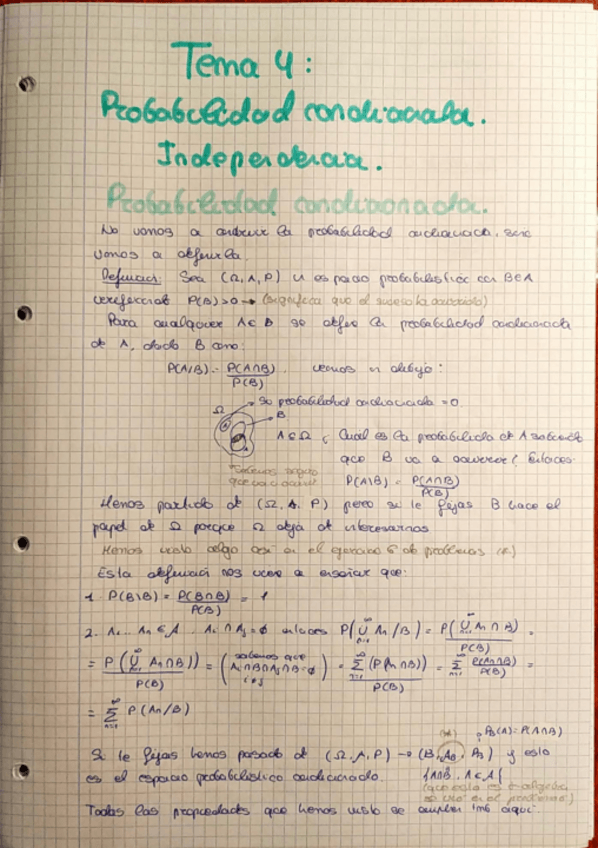 Tema 4:
Probabilidad condicionada.
Independencia.
Probabilidad condicionada.
No vamos a construir la probabilidad condicionada, sino
vamos a definirla.
Definición: Sea (Ω, A, P) un espacio probabilístico con B∈A
verificando P(B)>0 → (significa que el suceso ha ocurrido)
Para cualquier A∈ se define la probabilidad condicionada
de A, dado B como:
P(A/B) = P(A∩B)/P(B). veamos un dibujo:
Ω
Su probabilidad condicionada = 0
B
A∈Ω ¿Cuál es la probabilidad de A sabiendo
que B va a ocurrir? Entonces
que va a ocurrir
P(A\B) = P(A∩B)/P(B)
Hemos partido de (Ω, A, P) pero si te fijas B hace el
papel de Ω porque Ω deja de interesarnos
Hemos visto algo así en el ejercicio 6 de problemas
Esta definición nos viene a enseñar que:
1. P(B\B) = P(B∩B)/P(B) = 1
2. A₁... Aₙ ∈ A ... Aᵢ ∩ Aⱼ = ∅ entonces P(⋃ₙ₌₁^∞ Aₙ/B) = P(⋃ₙ₌₁^∞ Aₙ∩B)/P(B) =
= P(⋃ₙ₌₁^∞ (Aₙ∩B))/P(B) = (sabemos que Aᵢ∩B∩Aⱼ∩B=∅ i≠j) = ∑ₙ₌₁^∞ (P(Aₙ∩B))/P(B) = ∑ₙ₌₁^∞ P(Aₙ∩B)/P(B) =
= ∑ₙ₌₁^∞ P(Aₙ/B)
P_B(A) = P(A∩B)
Si te fijas hemos pasado de (Ω, A, P) → (B, A_B, P_B) y esto
es el espacio probabilístico condicionado. {A∩B, A∈A}
(que esto es σ-álgebra
se vio en el problema)
Todas las propiedades que hemos visto se cumplen tmb aquí.